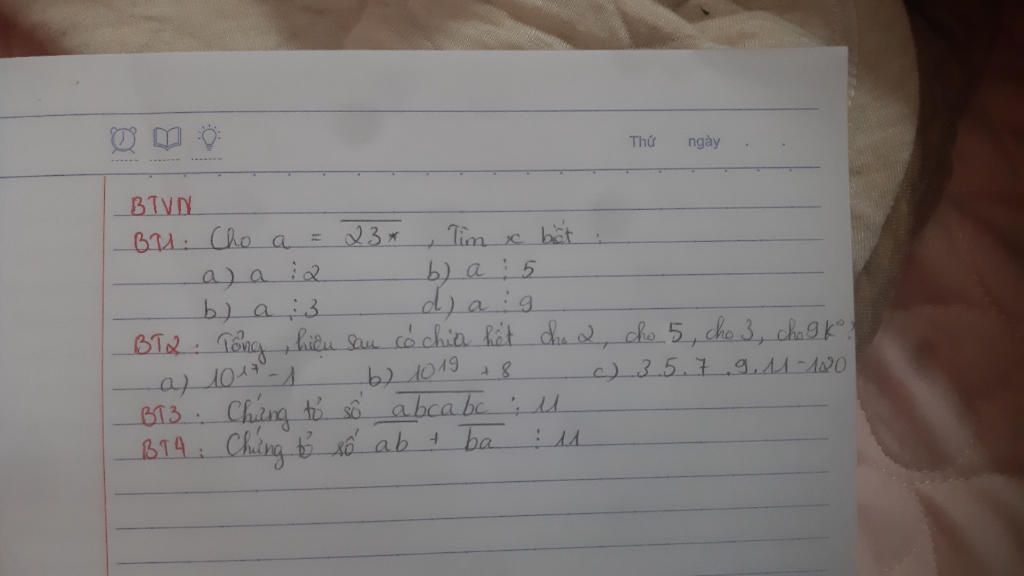 Thứ ngày . .
BTVN
BT1 : Cho a = \overline{23*} , Tìm x biết :
a) a ⋮ 2 b) a ⋮ 5
b) a ⋮ 3 d) a ⋮ 9
BT2 : Tổng , hiệu sau có chia hết cho 2, cho 5, cho 3, cho 9 k° ?
a) 10¹⁷ - 1 b) 10¹⁹ + 8 c) 3.5.7.9.11-120
BT3 : Chứng tỏ số \overline{abcabc} ⋮ 11
BT4 : Chứng tỏ số \overline{ab} + \overline{ba} ⋮ 11